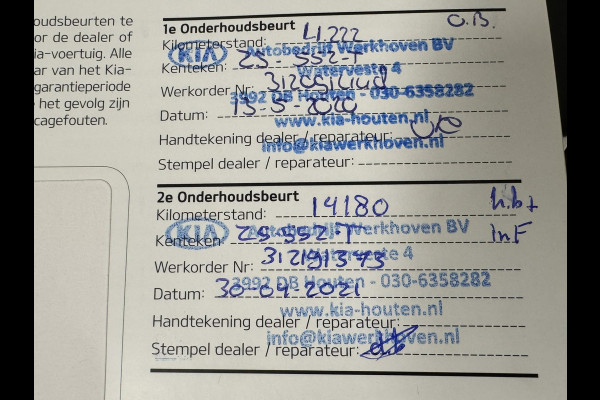 oudsbeurten te
or de dealer of
ia-voertuig. Alle
ar van het Kia-
garantieperiode
het gevolg zijn
cagefouten.
1e Onderhoudsbeurt
O.B.
Kilometerstand: 4.222
KIA Autobedrijf Werkhoven BV
Kenteken: ZS-552-T
Waterveste 4
Werkorder Nr:
3992 DB Houten - 030-6358282
Datum: 13-5-2020
www.kia-houten.nl
Handtekening dealer / reparateur:
info@kiawerkhoven.nl
Stempel dealer / reparateur:
2e Onderhoudsbeurt
Kilometerstand: 14180
KIA Autobedrijf Werkhoven BV
Kenteken: ZS-552-T
InF
Waterveste 4
Werkorder Nr: 312191373
3992 DB Houten - 030-6358282
Datum: 30-04-2021
www.kia-houten.nl
Handtekening dealer / reparateur:
info@kiawerkhoven.nl
Stempel dealer / reparateur: